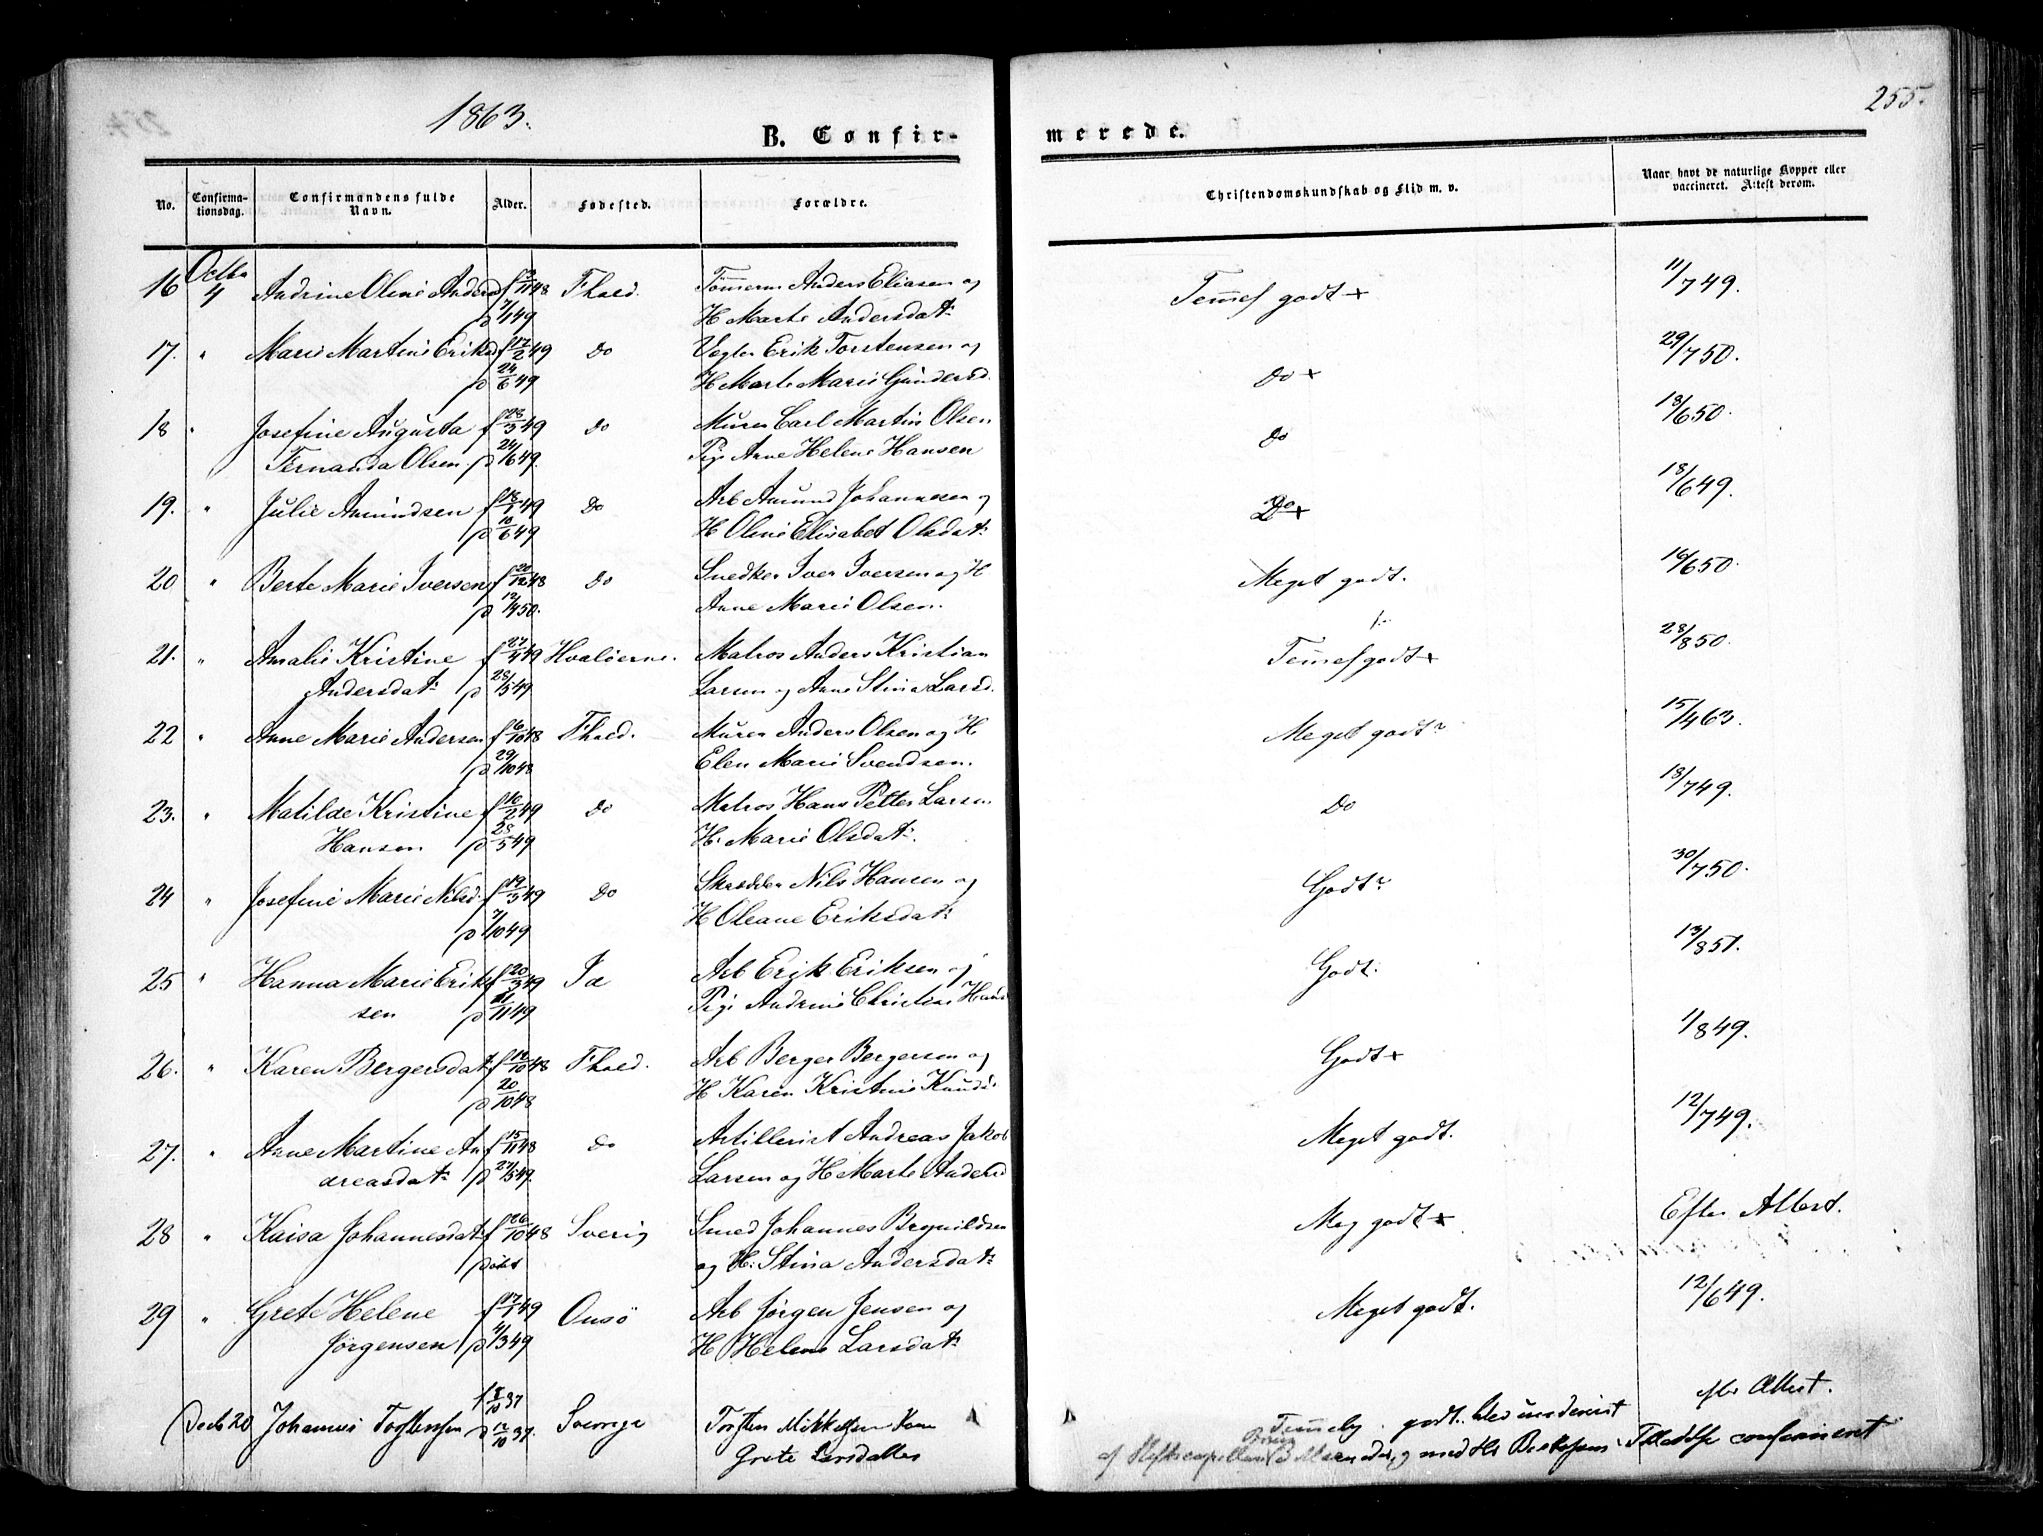 1863.
255.
B. Confir-
merede.
No.
Confirma-
tionsdag.
Confirmandens fulde
Navn.
Alder.
Fødested.
Forældre.
Christendomskundskab og Flid m. v.
Naar havt de naturlige Kopper eller
vaccineret. Attest derom.
16 Octbr 4 Andrine Oline Andersd f 3/11 48 Fhald. Tømmerm Anders Eliasen og Temmel godt + 11/7 49.
p 7/1 49 H Marte Andersdatr
17. " Marie Martine Eriksd f 17/2 49 Do Vegter Erik Torstensen og Do + 29/7 50.
p 24/6 49 H Marte Marie Gundersd.
18 " Josefine Augusta f 28/3 49 Do Murer Carl Martin Olsen Do 18/6 50.
Fernanda Olsen p 24/6 49. Pige Anne Helene Hansen
19. " Julie Amundsen f 18/1 49 Do Arb Amund Johannesen og Do + 18/6 49.
p 10/6 49 H Oline Elisabet Olsdatr
20 " Berte Marie Iversen f 20/12 48 Do Snedker Iver Iversen og H Meget godt. 16/6 50.
p 12/4 50. Anne Marie Olsen.
21. " Amalie Kristine f 27/4 49 Hvaløerne. Matros Anders Kristian Temmel godt + 28/8 50.
Andersdatr p 28/5 49 Larsen og Anne Stina Larsd.
22 " Anne Marie Andersen f 6/10 48 Fhald. Murer Anders Olsen og H Meget godt 15/4 63.
p 29/10 48 Elen Marie Svendsen.
23. " Matilde Kristine f 16/2 49 Do Matros Hans Petter Larsen Do 18/7 49.
Hansen p 28/5 49 H. Marie Olsdatr.
24 " Josefine Marie Nilsd. f 19/3 49 Do Skrædder Nils Hansen og Godt 30/7 50.
p 7/10 49 H Oleane Eriksdatr
25 " Hanna Marie Erik f 20/3 49 Id Arb Erik Eriksen og Godt. 13/8 51.
sen p 11/11 49 Pige Andrine Christine Hans
26. " Karen Bergersdat f 14/10 48 Fhald. Arb Berger Bergersen og Godt + 1/8 49.
p 20/10 48 H Karen Kristine Knuds
27. " Anne Martine An f 15/11 48 Do Artillerist Andreas Jakob Meget godt. 12/7 49.
dreasdatr p 27/5 49. Larsen og H Marte Andersd
28 " Kaisa Johannesdat f 26/10 48 Sverig Smed Johannes Bryniildsen Meg godt + Efter Attest.
p døbt og H. Stina Andersdatr
29 " Grete Helene f 17/1 49 Onsø Arb Jørgen Jensen og Meget godt. 12/6 49.
Jørgensen p 4/3 49 H Helene Larsdatr
Decb 20 Johannes Torstensen f 8/10 37 Sverrige Torsten Mikkelsen Temmelig godt. blev underviist efter Attest.
d 12/10 37. Grete Larsdatter af Stiftscapellan og med Biskopens Tilladelse confirmeret